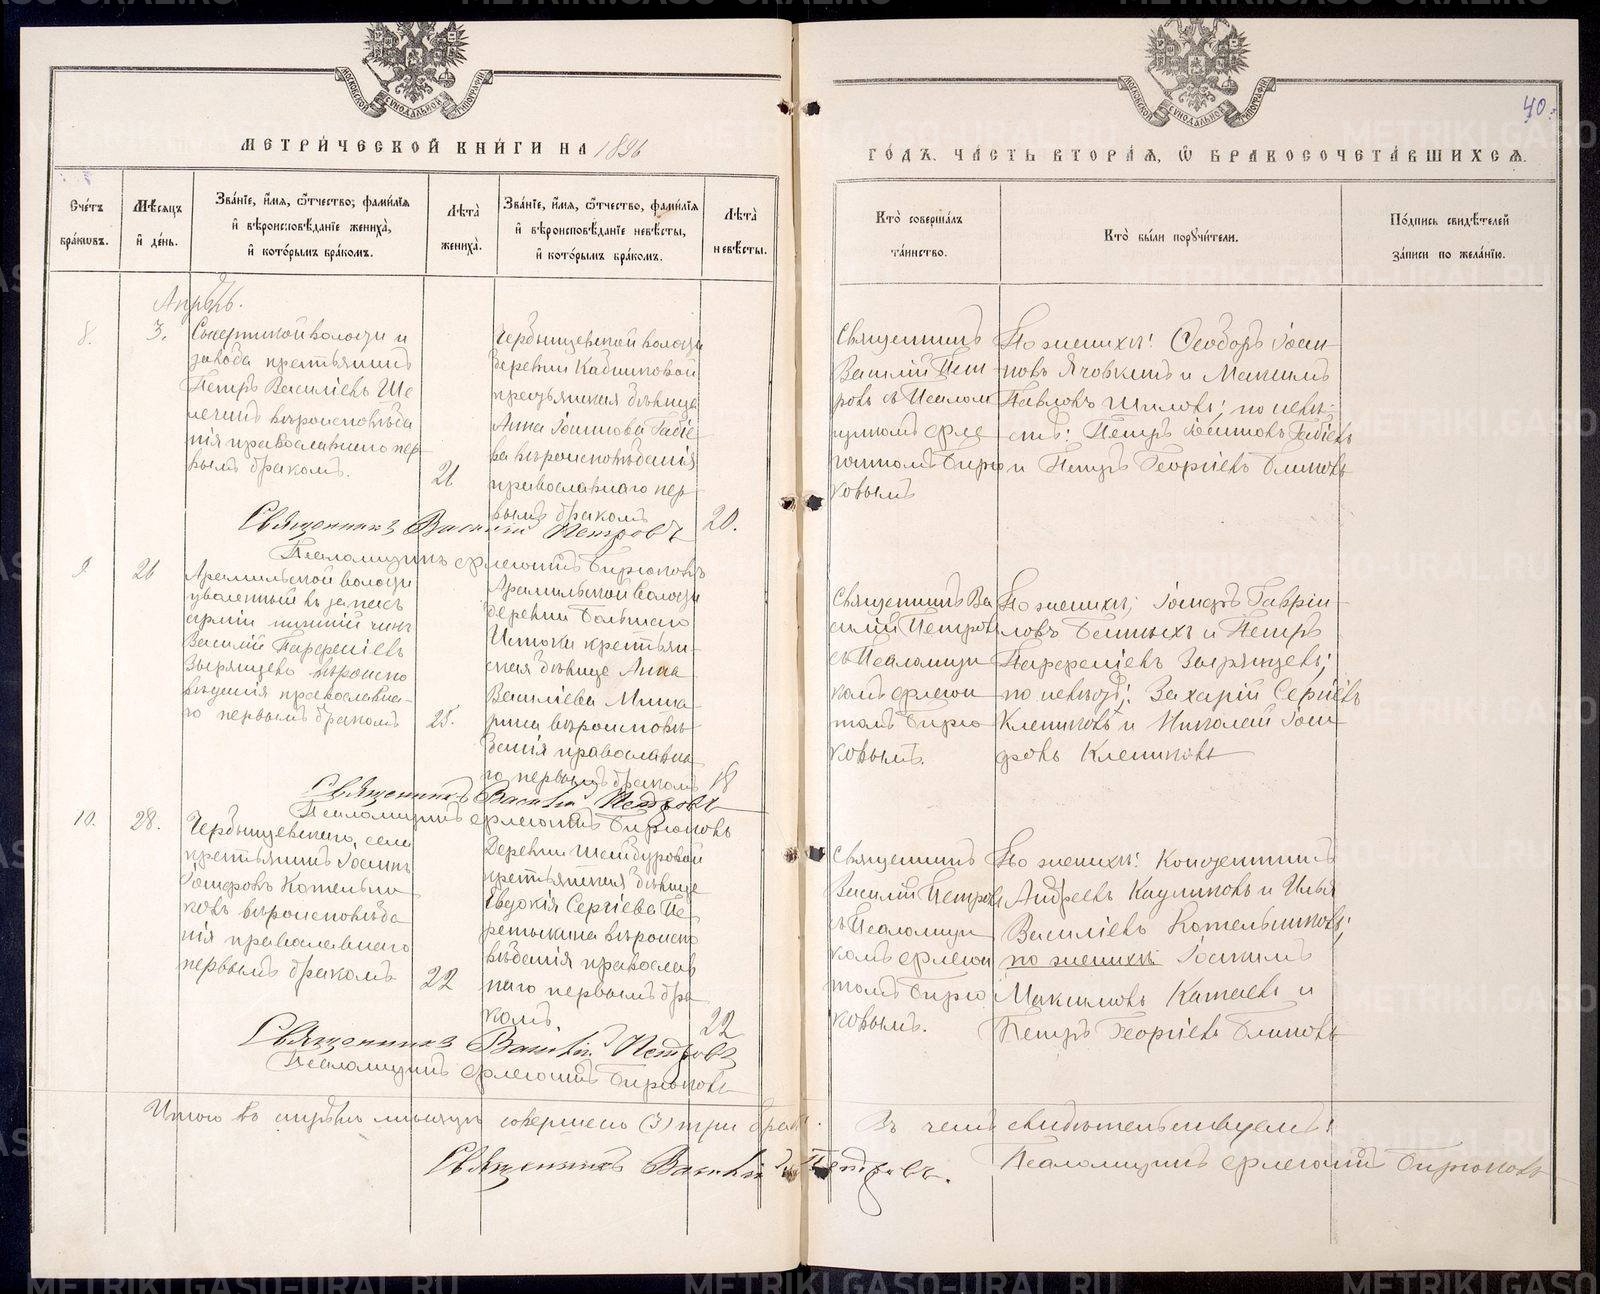 МЕТРИЧЕСКОЙ КНИГИ НА 1896
ГОДЪ, ЧАСТЬ ВТОРАЯ, Ѡ БРАКОСОЧЕТАВШИХСЯ.
40
МОСКОВСКОЙ СУНОДАЛЬНОЙ ТИПОГРАФІИ
МОСКОВСКОЙ СУНОДАЛЬНОЙ ТИПОГРАФІИ
Счетъ браковъ.
Мѣсяцъ и день.
Званіе, имя, ѿчество, фамилія и вѣроисповѣданіе жениха, и которымъ бракомъ.
Лѣта жениха.
Званіе, имя, ѿчество, фамилія и вѣроисповѣданіе невѣсты, и которымъ бракомъ.
Лѣта невѣсты.
Кто совершалъ таинство.
Кто были поручители.
Подпись свидѣтелей записи по желанію.
Апрѣль.
8.
3.
Сысертской волости и
завода крестьянинъ
Петръ Василіевъ Ше
легинъ вѣроисповѣда
нія православнаго пер
вымъ бракомъ.
21
волости
деревни Кадниковой
крестьянская дѣвица
Анна Іоаннова
ва вѣроисповѣданія
православнаго пер
вымъ бракомъ
20.
Священникъ
Василій Пет
ровъ съ Псалом
щикомъ
Бирю
ковымъ
По женихѣ: Ѳеодоръ Іоан
новъ и Максимъ
Павловъ Шиловъ; по невѣ
стѣ: Петръ Іоанновъ
и Петръ Георгіевъ Блиновъ
Священникъ Василій Петровъ
Псаломщикъ Бирюковъ
9.
21
Арамильской волости
уволенный въ запасъ
арміи нижній чинъ
Василій Парфеніевъ
Зырянцевъ вѣроиспо
вѣданія православна
го первымъ бракомъ
25.
Арамильской волости
деревни Большаго
Истока крестьян
ская дѣвица Анна
Василіева
вѣроисповѣ
данія православна
го первымъ бракомъ
18
Священникъ Ва
силій Петровъ
съ Псаломщи
комъ
Бирю
ковымъ.
По женихѣ; Гаврiи
ловъ и Петръ
Парфеніевъ Зырянцевъ;
по невѣстѣ: Захарій Сергіевъ
Клепиковъ и Николай
Клепиковъ
Священникъ Василій Петровъ
Псаломщикъ Бирюковъ
10.
28.
села
крестьянинъ Іоаннъ
Котельни
ковъ вѣроисповѣда
нія православнаго
первымъ бракомъ
22
Деревни Шайдуровой
крестьянская дѣвица
Евдокія Сергіева Пе
ретыкина вѣроиспо
вѣданія православ
наго первымъ бра
комъ
22
Священникъ
Василій Петровъ
съ Псаломщи
комъ
Бирю
ковымъ.
По женихѣ:
Андреевъ и Илья
Василіевъ Котельниковъ;
по женихѣ Іоакимъ
Максимовъ Катаевъ и
Петръ Георгіевъ Блиновъ
Священникъ Василій Петровъ
Псаломщикъ Бирюковъ
Итого въ апрѣлѣ мѣсяцѣ совершено (3) три брака. Въ чемъ свидѣтельствуемъ:
Священникъ Василій Петровъ.
Псаломщикъ Бирюковъ
METRIKI.GASO-URAL.RU